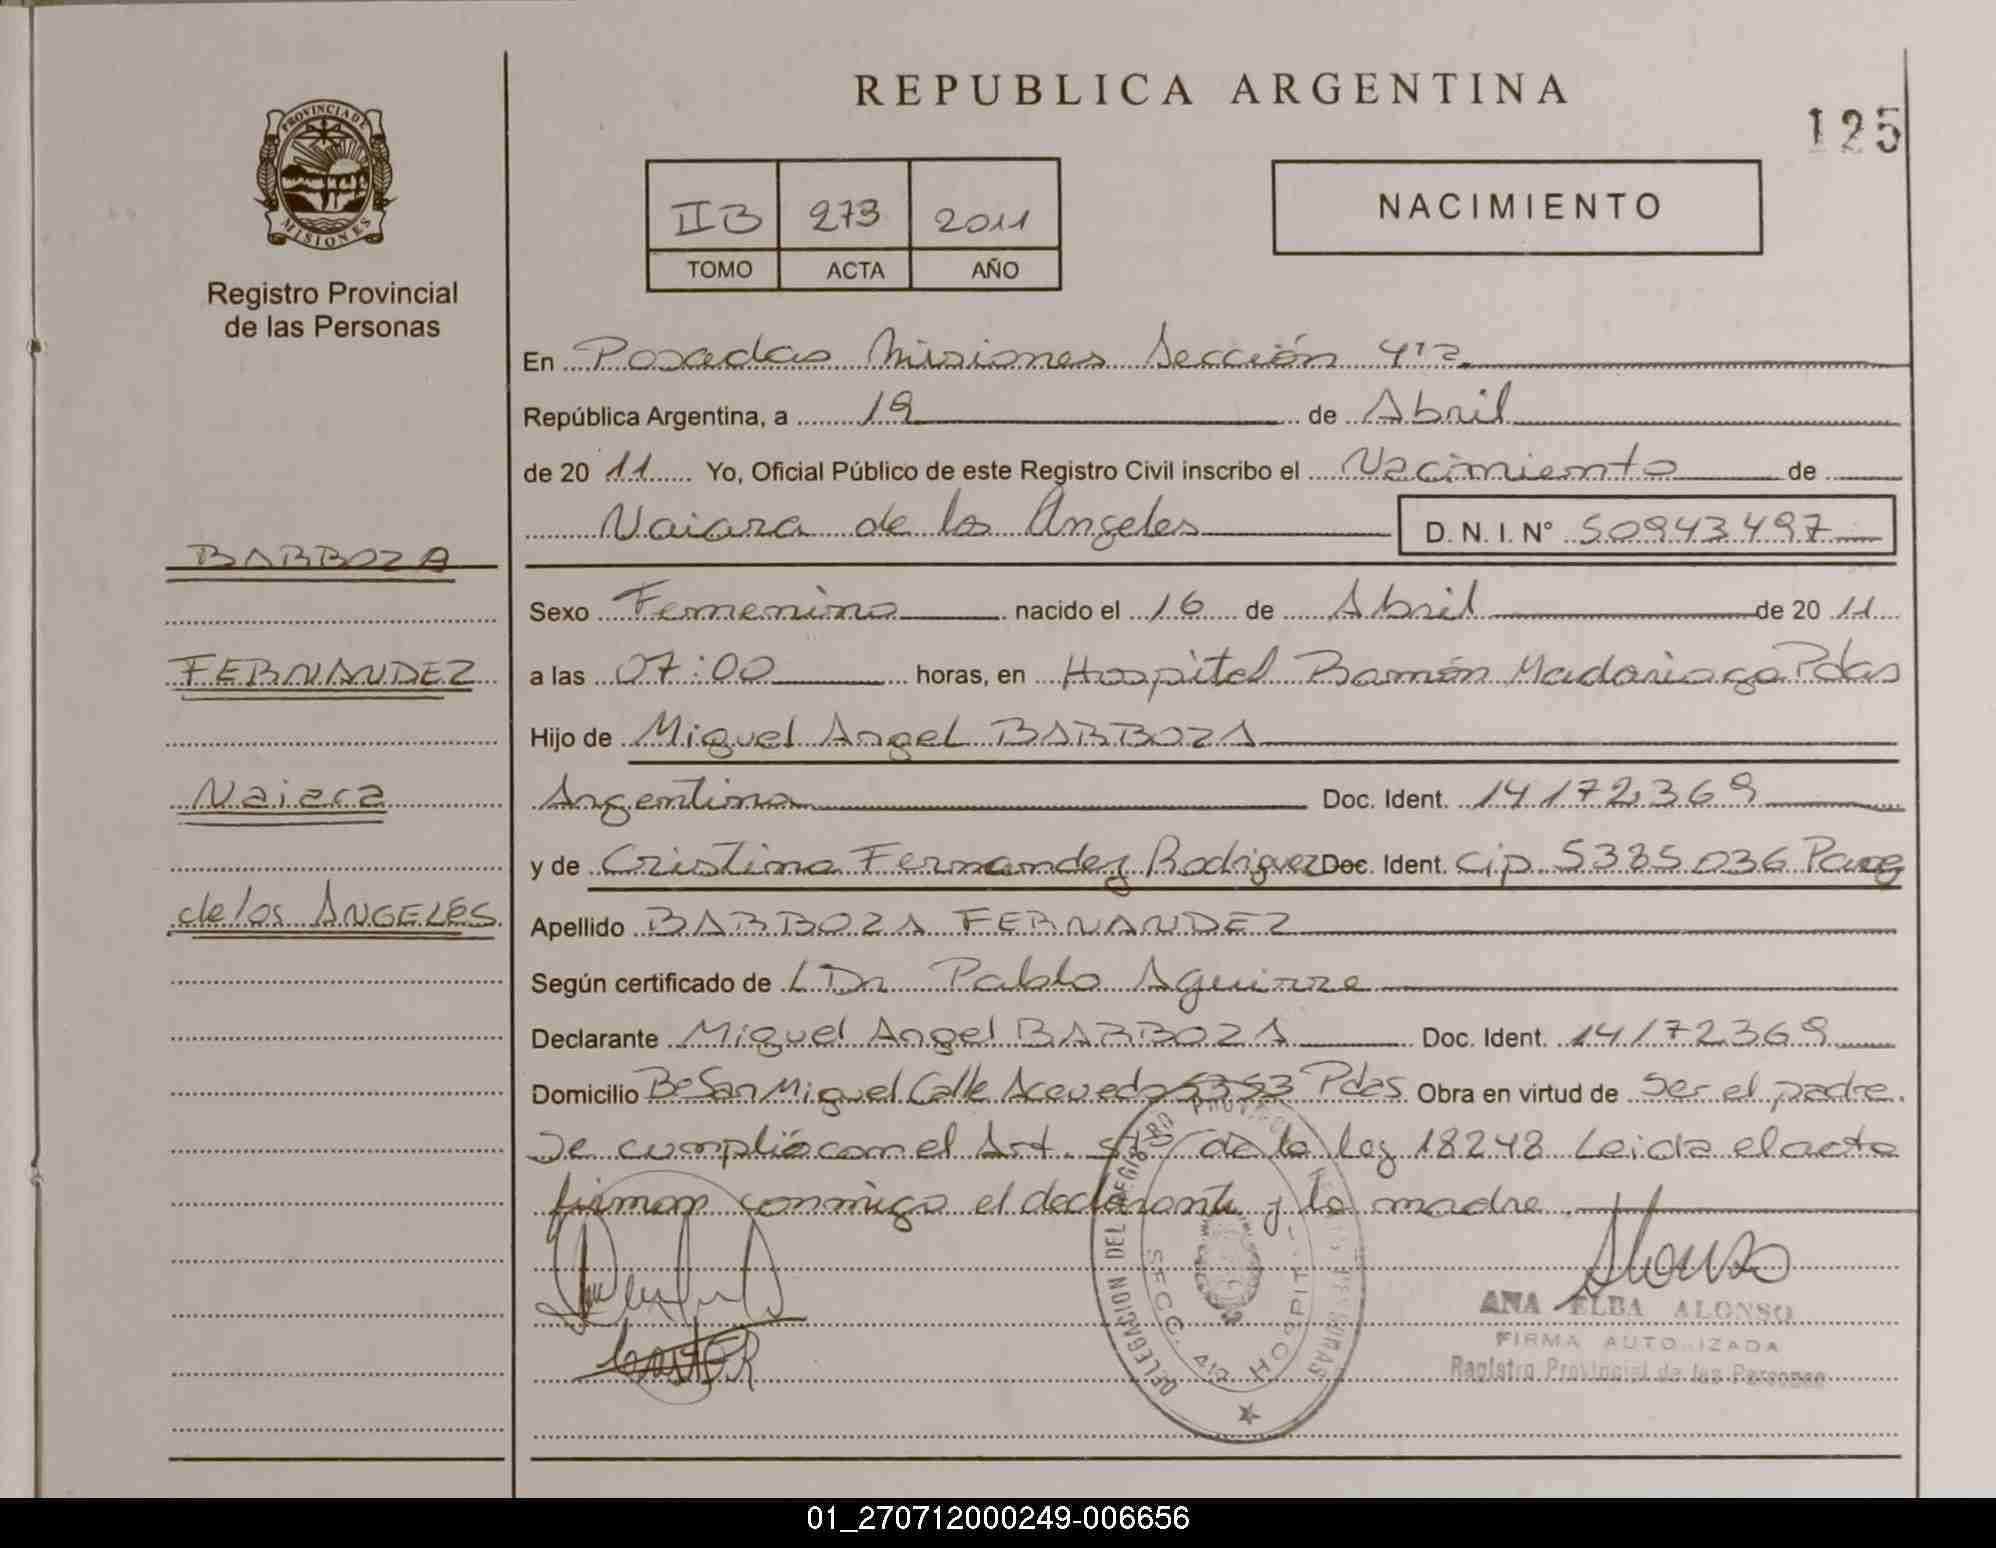 REPUBLICA ARGENTINA
125
PROVINCIA DE
MISIONES
Registro Provincial
de las Personas
IIB 273 2011
TOMO ACTA AÑO
NACIMIENTO
En Posadas Misiones Sección 4ta
República Argentina, a 19 de Abril
de 20 11 Yo, Oficial Público de este Registro Civil inscribo el Nacimiento de
Naiara de los Angeles D.N.I. N° 50943497
BARBOZA
FERNANDEZ
Naiara
de los ANGELES
Sexo Femenino nacido el 16 de Abril de 20 11
a las 07:00 horas, en Hospital Ramón Madariaga Pdas
Hijo de Miguel Angel BARBOZA
Argentina Doc. Ident. 14172369
y de Cristina Fernandez Rodriguez Doc. Ident. Cip 5385036 Parag
Apellido BARBOZA FERNANDEZ
Según certificado de LDr Pablo Aguirre
Declarante Miguel Angel BARBOZA Doc. Ident. 14172369
Domicilio Bº San Miguel Calle Acevedo 5353 Pdas Obra en virtud de ser el padre.
Se cumplió con el Art. 5to de la ley 18248 Leida el acta
firman conmigo el declarante y la madre.
DELEGACION DEL REGISTRO PROVINCIAL DE LAS PERSONAS
SECC. 4ta HOSPITAL
Alonso
ANA ELBA ALONSO
FIRMA AUTORIZADA
Registro Provincial de las Personas
01_270712000249-006656